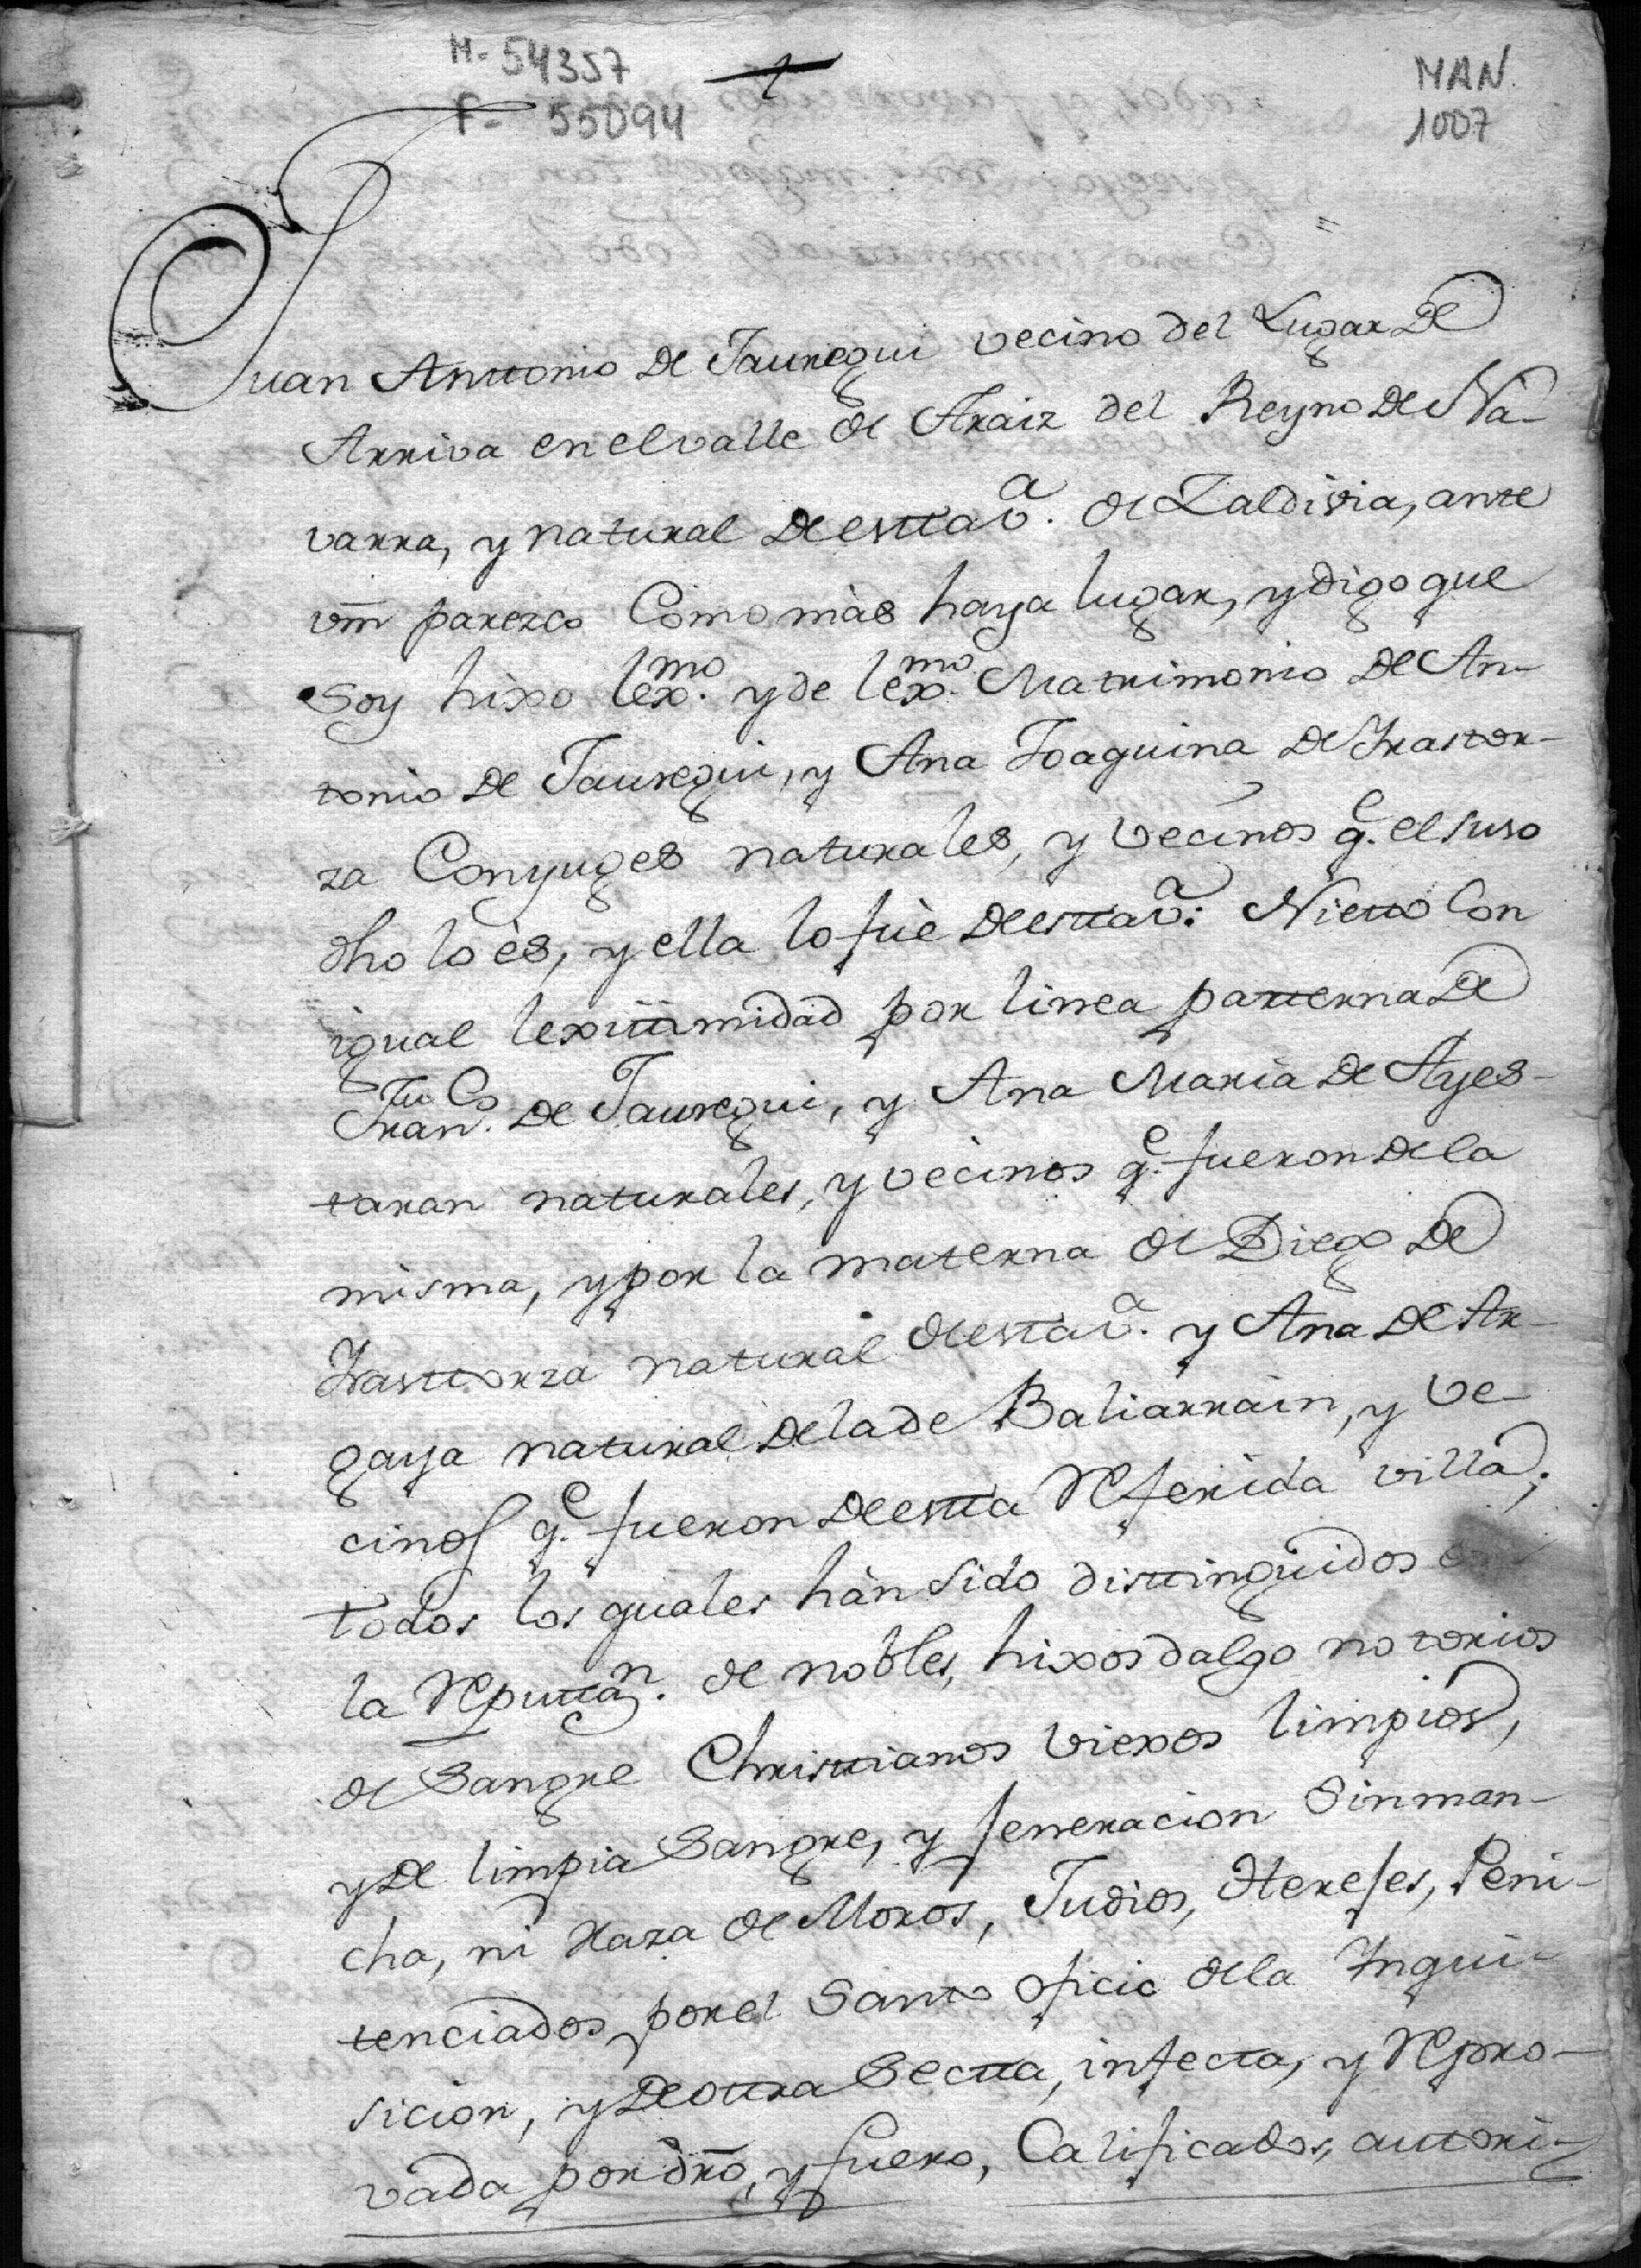 M- 54357
F- 55094
MAN.
1007
Juan Anttonio de Jauregui vecino del Lugar de
Arriva en el valle de Araiz del Reyno de Na-
varra, y natural de esttav.ª de Zaldivia, ante
vm̄ parezco Como màs haya lugar, y digo que
Soy hixo lex.mo y de lex.mo Matrimonio de An-
tonio de Jauregui, y Ana Joaquina de Yrastor-
za Conyuges naturales, y vecinos q.e el suso
dho lo ès, y ella lo fuè de esttav.ª: Nietto Con
igual lexittimidad por linea patterna de
Fran.co de Jauregui, y Ana Maria de Ayes-
taran naturales, y vecinos q.e fueron de la
misma, y por la materna de Diego de
Yrasttorza natural de esttav.ª y Ana de Ar-
gaya natural de la de Baliarrain, y ve-
cinos q.e fueron de estta Referida villa;
todos los quales hàn sido disttinguidos
la Reputtaz.n de nobles, hixosdalgo notorios
de Sangre Christtianos viexos limpios,
y de limpia Sangre, y Jeneracion Sin man-
cha, ni Raza de Moros, Judios, Herejes, Peni-
tenciados por el Santo oficio de la Inqui-
sicion, y de ottra Sectta, infecta, y Repro-
vada por dr̄o, y fuero, Calificados, auttori-